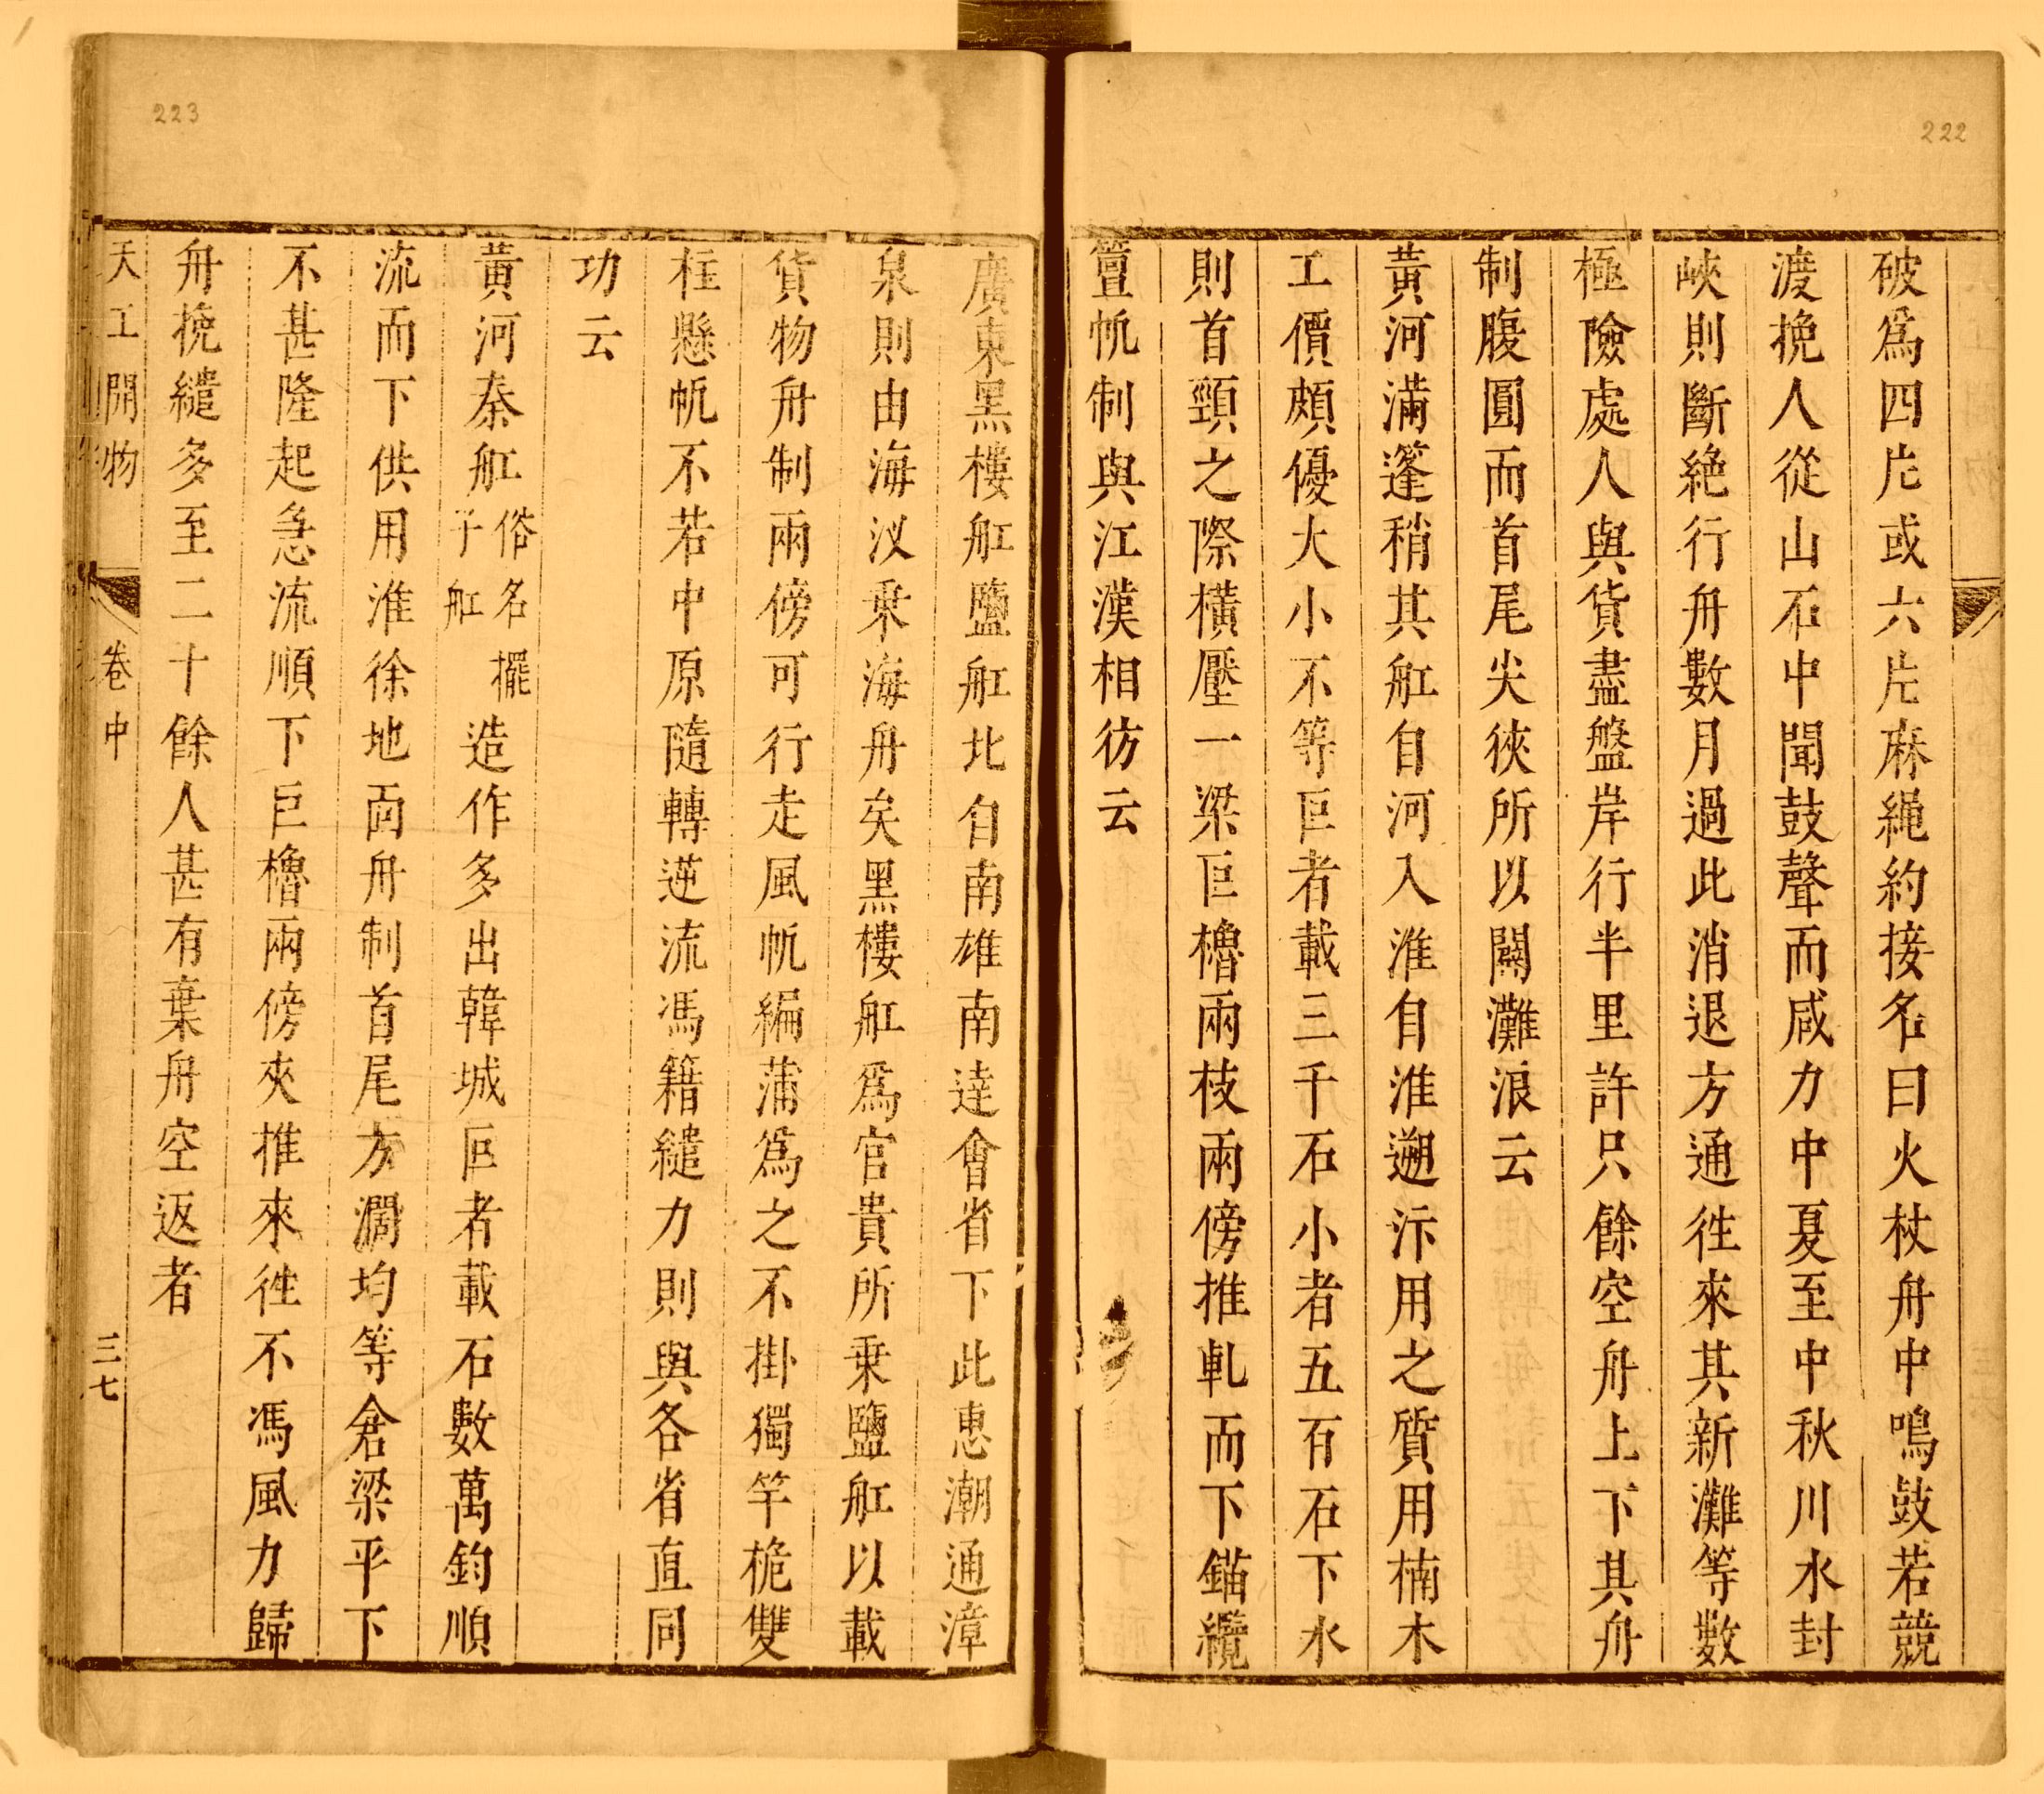 222
破爲四片或六片麻繩約接名曰火杖舟中鳴鼓若競
渡挽人從山石中聞鼓聲而咸力中夏至中秋川水封
峽則斷絶行舟數月過此消退方通徃來其新灘等數
極險處人與貨盡盤岸行半里許只餘空舟上下其舟
制腹圓而首尾尖狹所以闢灘浪云
黃河滿篷稍其舡自河入淮自淮遡汴用之質用楠木
工價頗優大小不等巨者載三千石小者五百石下水
則首頸之際橫壓一梁巨櫓兩枝兩傍推軋而下錨纜
簟帆制與江漢相彷云
223
廣東黑樓舡鹽舡北自南雄南達會省下此惠潮通漳
泉則由海汊乘海舟矣黑樓舡爲官貴所乘鹽舡以載
貨物舟制兩傍可行走風帆編蒲爲之不掛獨竿桅雙
柱懸帆不若中原隨轉逆流馮籍纜力則與各省直同
功云
黃河秦舡俗名擺子舡造作多出韓城巨者載石數萬鈞順
流而下供用淮徐地面舟制首尾方濶均等倉梁平下
不甚隆起急流順下巨櫓兩傍夾推來徃不馮風力歸
舟挽繾多至二十餘人甚有棄舟空返者
天工開物 卷中 三七